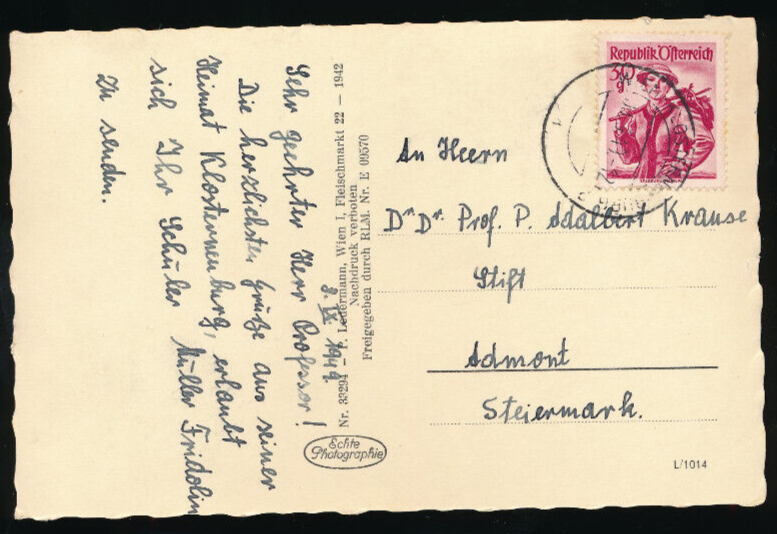 Sehr geehrter Herr Professor!
Die herzlichsten Grüße aus seiner
Heimat Klosterneuburg, erlaubt
sich Ihr Schüler Müller Fridolin
zu senden.
8. IX 1949.
Nr. 33294 – P. Ledermann, Wien I, Fleischmarkt 22 – 1942
Nachdruck verboten
Freigegeben durch RLM. Nr. E 09570
Echte
Photographie
Republik Österreich
30
g
An Herrn
Dr Dr. Prof. P. Adalbert Krause
Stift
Admont
Steiermark.
L/1014